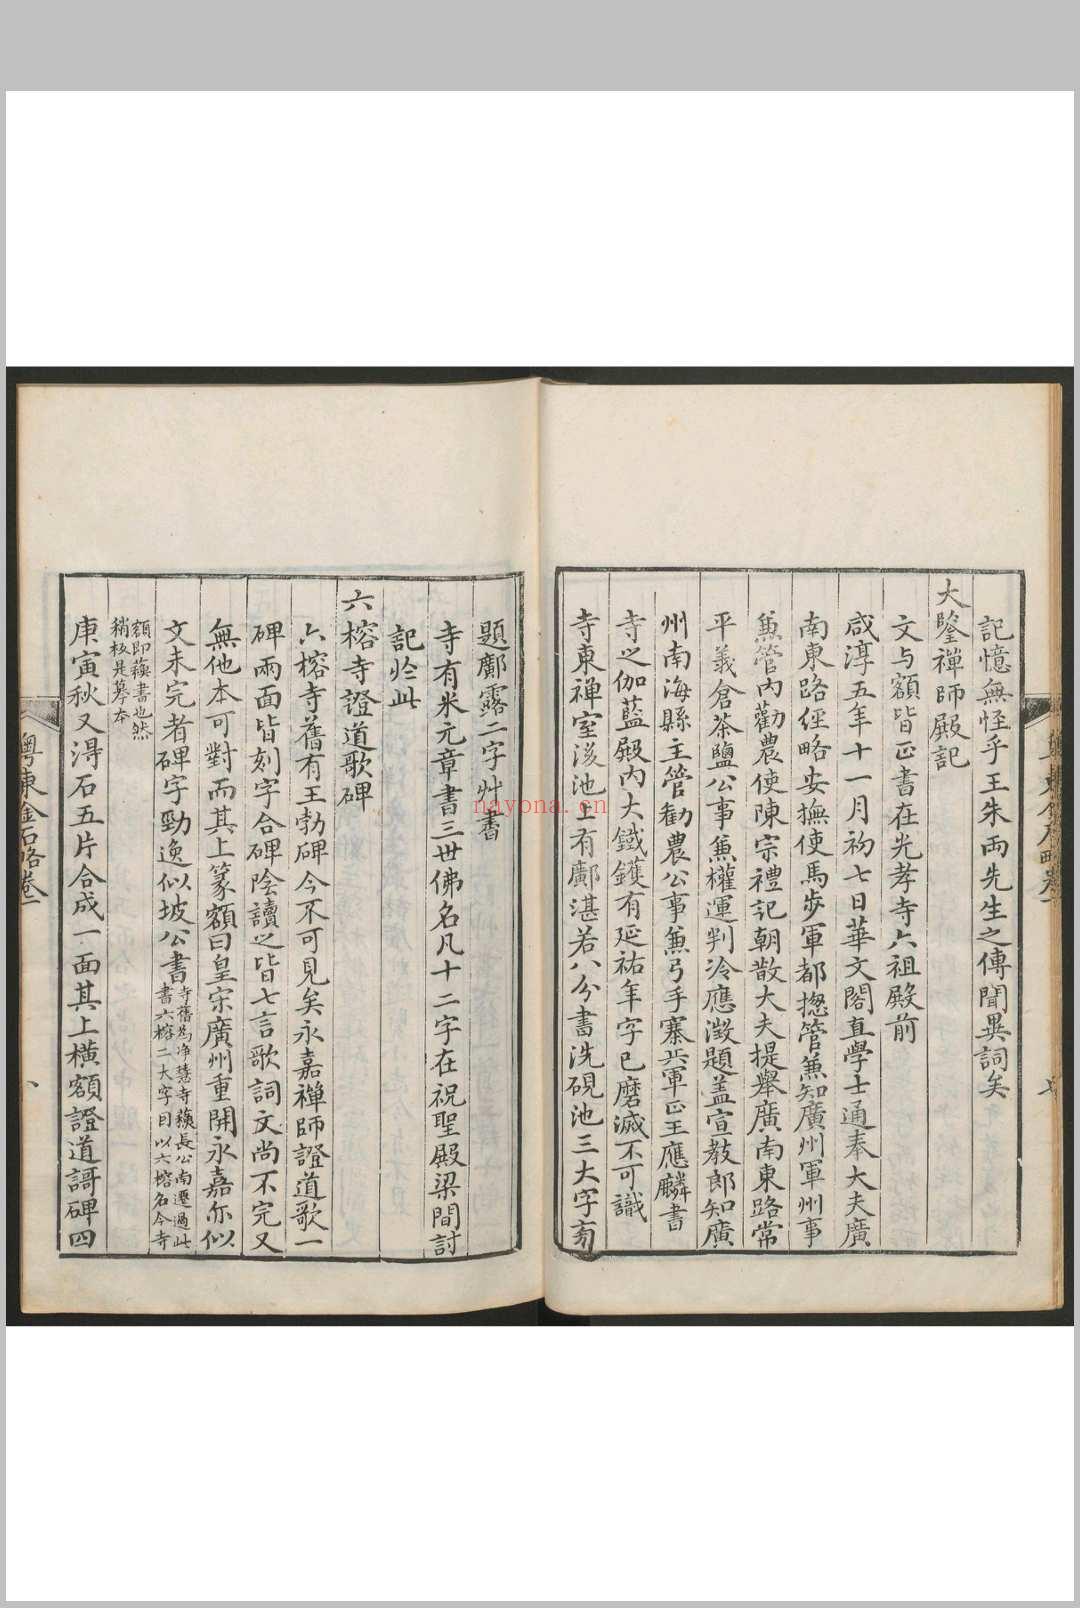 記憶無怪乎王朱兩先生之傳聞異詞矣
大鑒禪師殿記
文与額皆正書在光孝寺六祖殿前
咸淳五年十一月初七日華文閣直學士通奉大夫廣
南東路經略安撫使馬步軍都揔管兼知廣州軍州事
兼管內勸農使陳宗禮記朝散大夫提舉廣南東路常
平義倉茶鹽公事兼權運判冷應澂題蓋宣教郎知廣
州南海縣主管勸農公事兼弓手寨兵軍正王應麟書
寺之伽藍殿內大鐵鑊有延祐年字已磨滅不可識
寺東禪室後池上有鄺湛若八分書洗硯池三大字旁
題鄺露二字艸書
寺有米元章書三世佛名凡十二字在祝聖殿梁間討
記於此
六榕寺證道歌碑
六榕寺舊有王勃碑今不可見矣永嘉禪師證道歌一
碑兩面皆刻字合碑陰讀之皆七言歌詞文尚不完又
無他本可對而其上篆額曰皇宋廣州重開永嘉尔似
文未完者碑字勁逸似坡公書
寺舊為淨慧寺蘓長公南遷過此
書六榕二大字因以六榕名今寺
額即蘓書也然
稍核是摹本
庚寅秋又淂石五片合成一面其上橫額證道謌碑四
粵東金石略卷二
八
nayona.cn